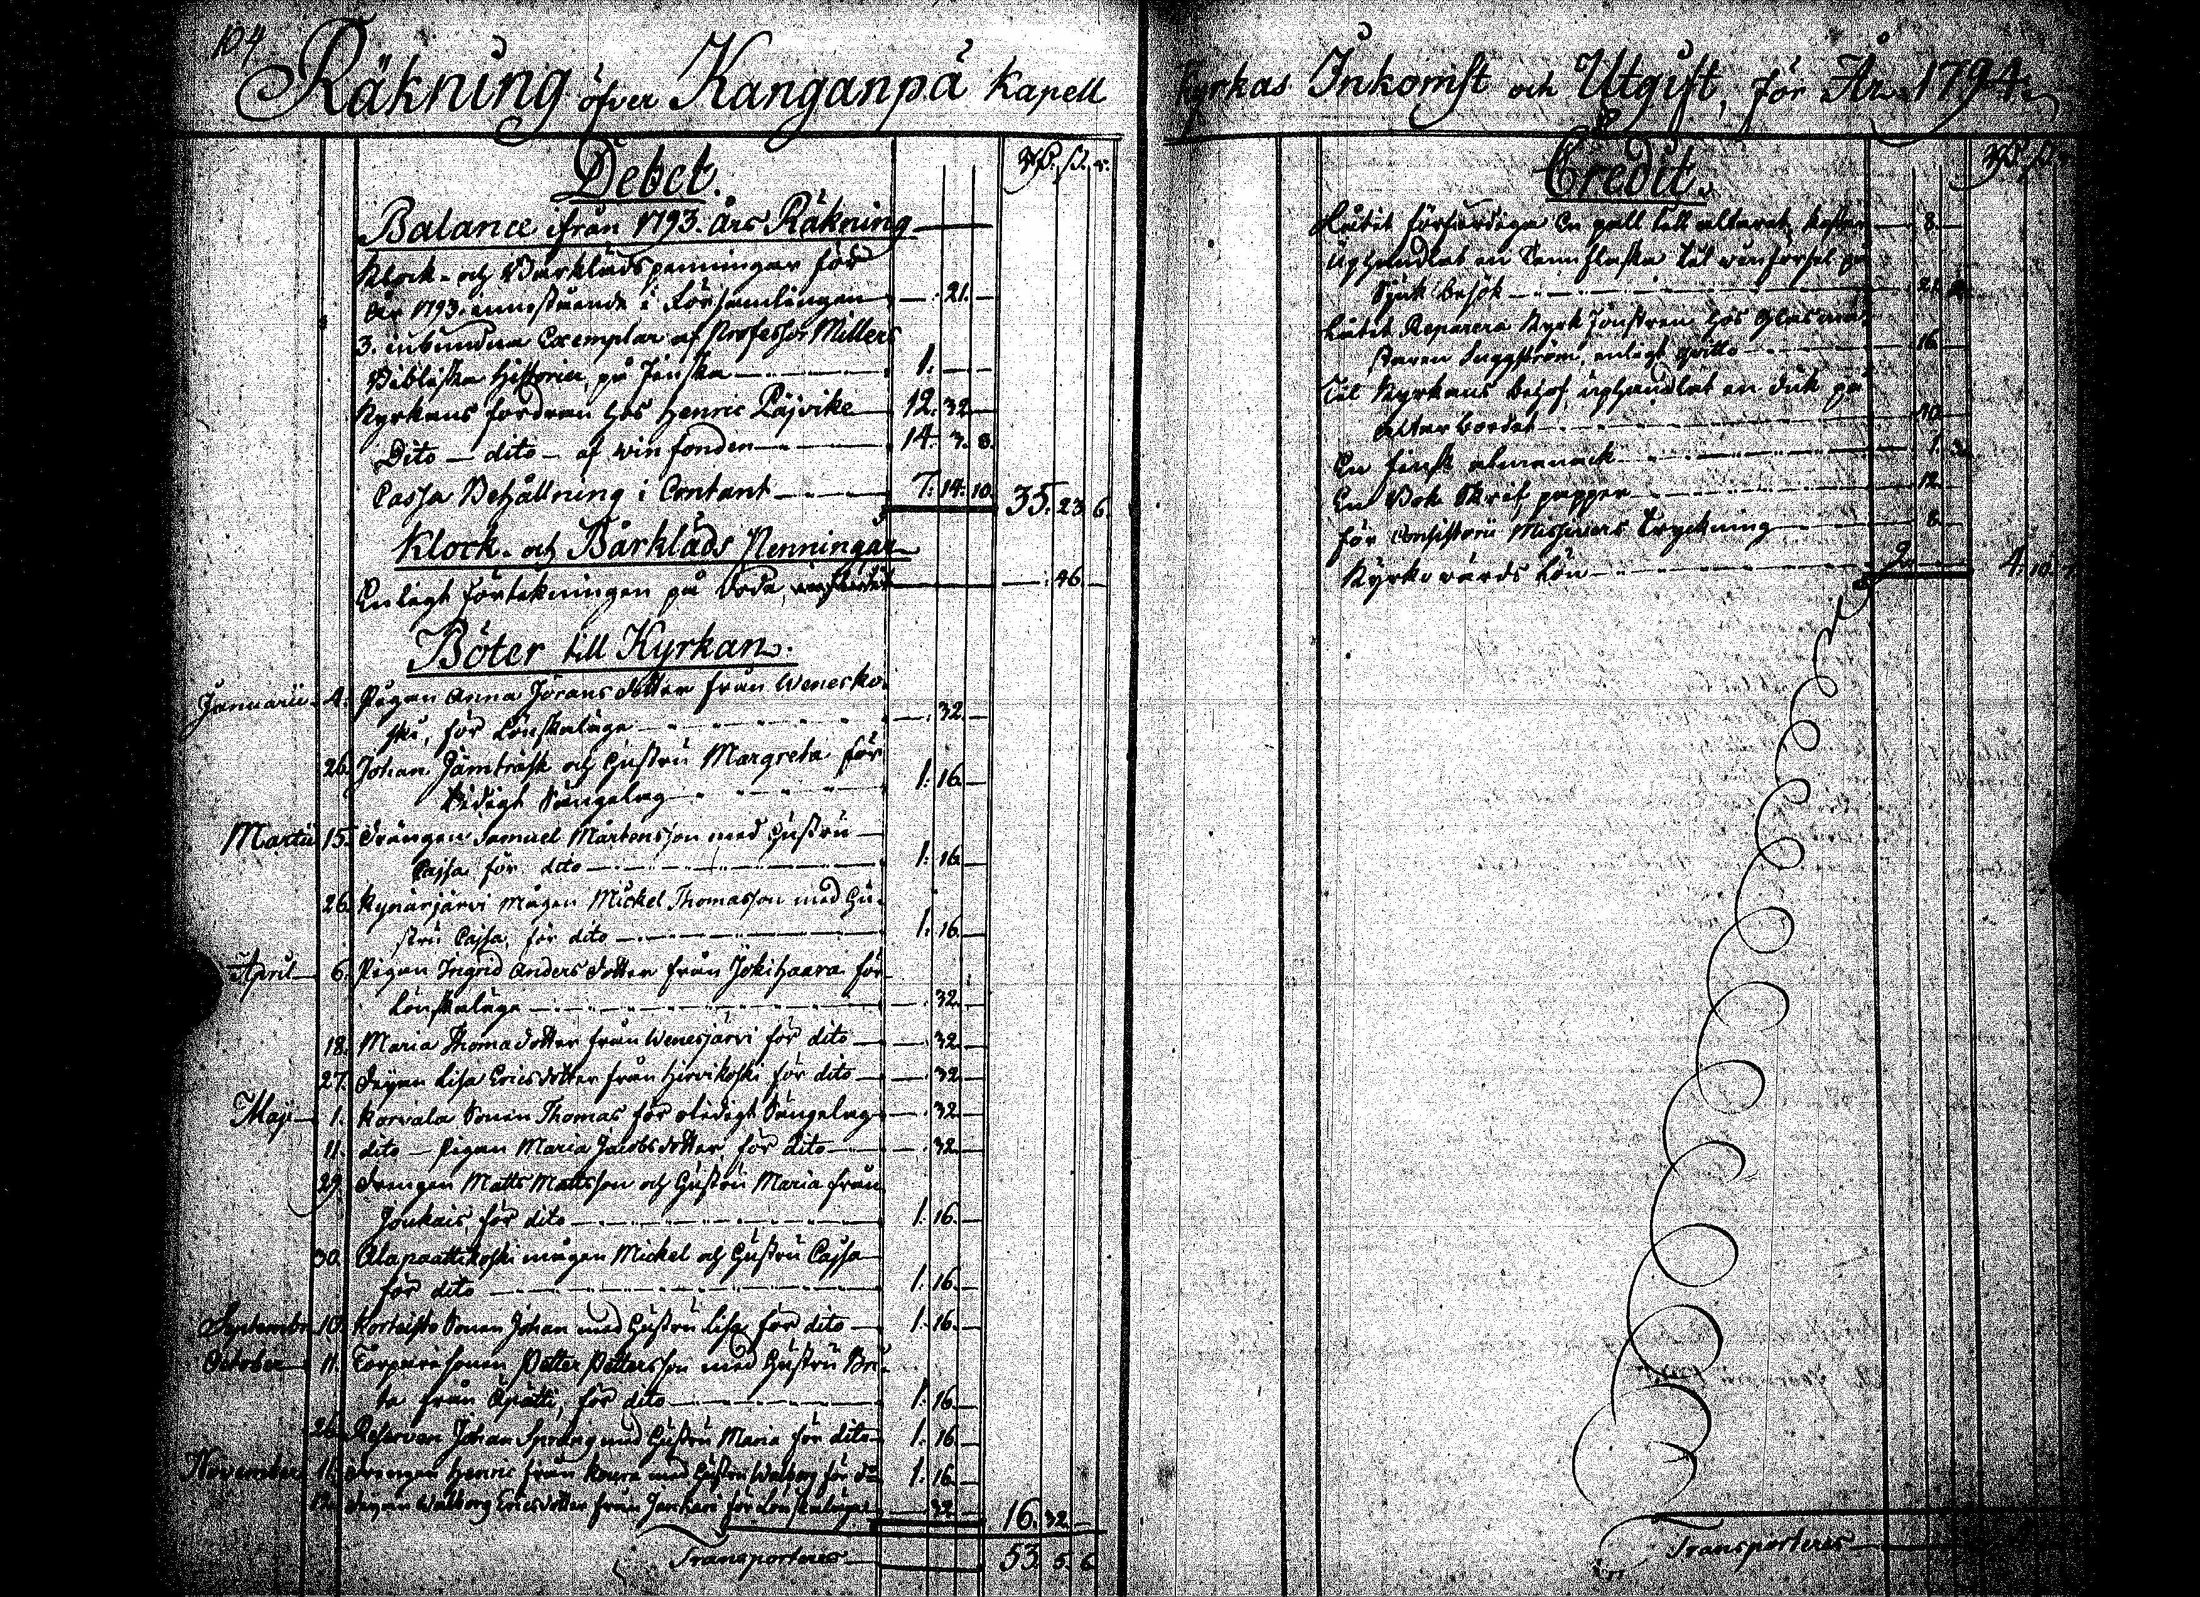 104
Räkning öfver Kanganpä Kapell Kyrkas Inkomst och Utgift, för År 1794.
Debet.
Balance ifrån 1793. års Räkning
Klock- och Bårklädspenningar för
år 1793. innestående i Församlingen — 21. —
3. inbundna Exemplar af Professor Millers
Bibliska Historia, på Finska — 1. — —
Kyrkans fordran hos Henric Päjvike — 12. 32. —
Dito — dito — af vin fonden — 14. 3. 8.
Cassa Behållning i Contant — 7. 14. 10. 35. 23. 6.
Klock- och Bårkläds Penningar
Enligt förtekningen på döda — 46. —
Böter till Kyrkan.
Januarii 4. Pigan Anna Jörans dotter från Wenesko-
ski, för Lönskaläge — 32. —
26. Johan Jämträsk och Hustru Margreta för
Sängelag — 1. 16. —
Martii 15. Drängen Samuel Mårtensson med Hustru
Cajsa för dito — 1. 16. —
26. Kynärjärvi mågen Mickel Thomasson med Hu-
stru Cajsa, för dito — 1. 16. —
April 6. Pigan Ingrid Anders dotter från Jokihaara för
Lönskaläge — 32. —
18. Maria Thomadotter från Wenesjärvi för dito — 32. —
27. Pigan Lisa Ericsdotter från Hirvikoski för dito — 32. —
Maji 1. Korvala Sonen Thomas för olidigt Sängelag — 32. —
11. dito — Pigan Maria Jacobsdotter för dito — 32. —
29. Drengen Matts Mattsson och Hustru Maria från
Jonkais för dito — 1. 16. —
30. Alapaattikoski mågen Mickel och Hustru Cajsa
för dito — 1. 16. —
September 10. Sonen Johan med Hustru Lisa för dito — 1. 16. —
October 11. Torpare sonen Petter Pettersson med Hustru Bri-
ta från för dito — 1. 16. —
26. Reserven Johan Spräng med Hustru Maria för dito — 1. 16. —
November 11. Drengen Henric från med Hustru Walborg för do — 1. 16. —
Pigan Walborg Ericsdotter från för Lönskaläge — 32. — 16. 32. —
Transporteres — 53. 5. 6.
Credit.
Låtit förfärdiga En pall till altaret, kostar — 8. —
Uphandlat en Tennflaska til vinförsel på
Sjuk besök — 21.
Låtit Reparera Kyrk fönstren hos Glasmä-
staren Suggström, enligt qvitto — 16. —
Til Kyrkans behof uphandlat en duk på
Altar bordet
En finsk almanack — 1.
En Bok Skrif papper — 12. —
för Consistorii Missivers Tryckning — 8. —
Kyrkovärds Lön — 2. — — 4.
Transporteres